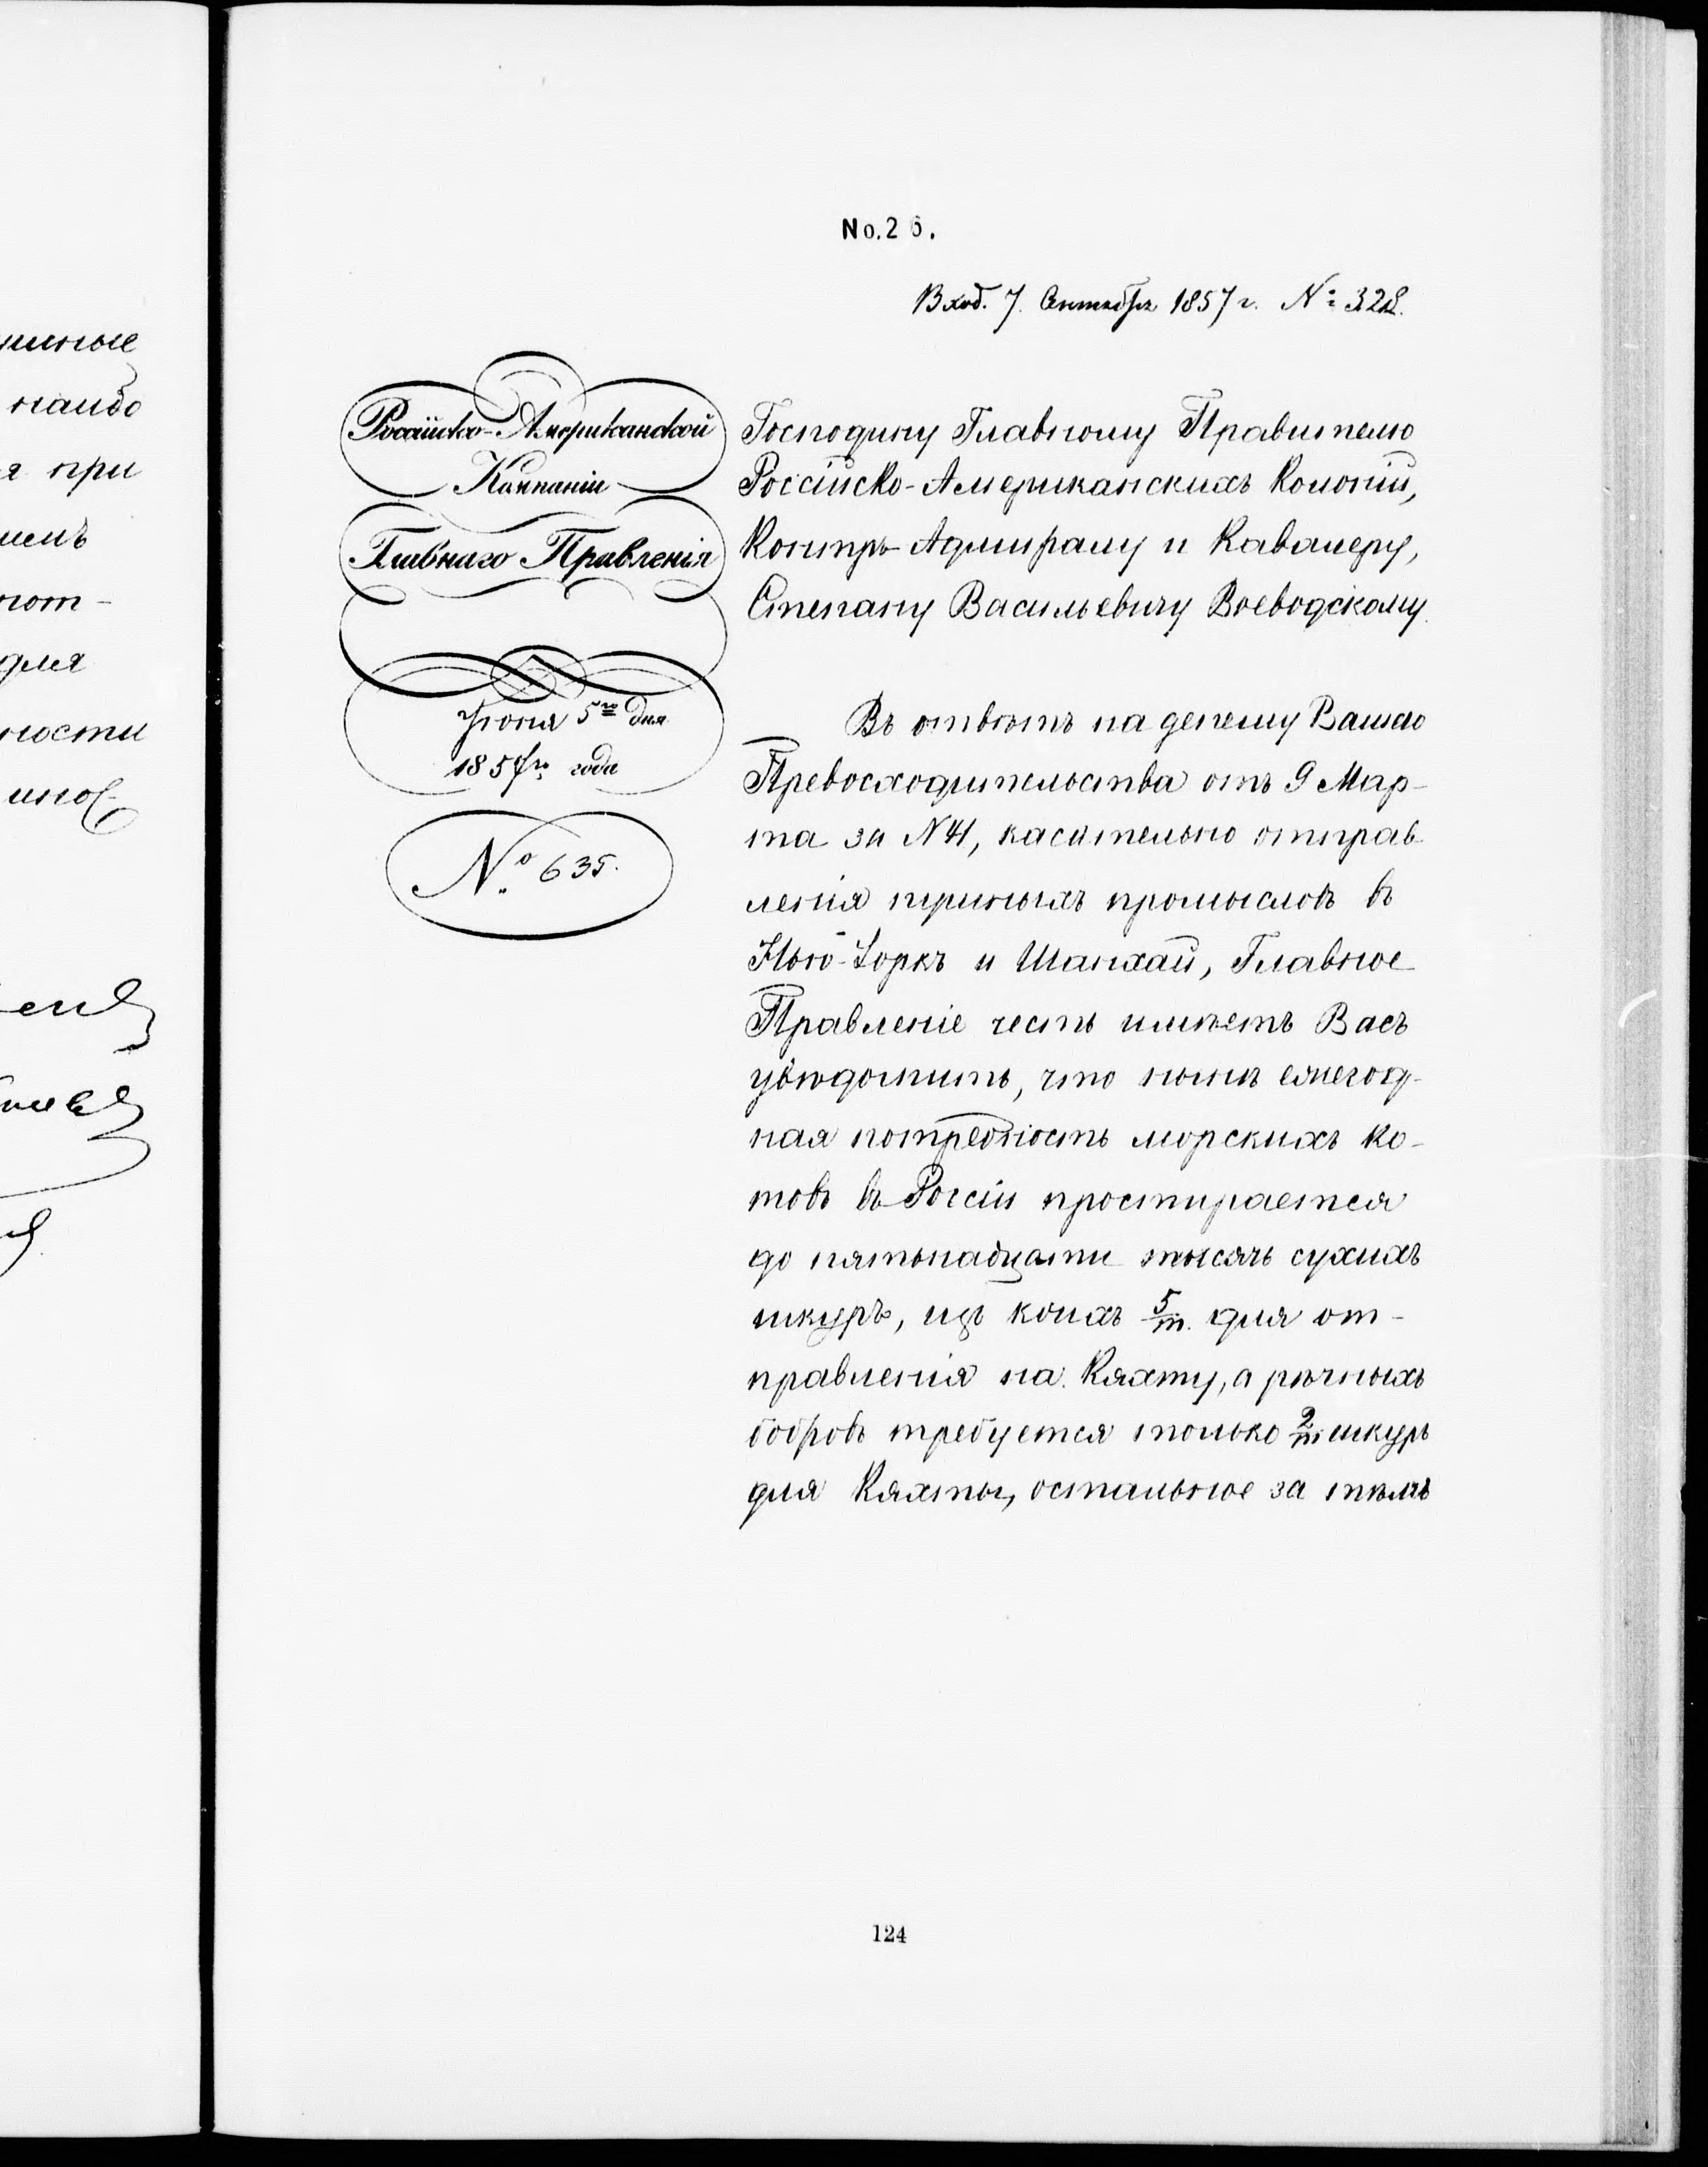 No. 26.
Вход. 7. Сентября 1857 г. № 328.
Россійско-Американской
Компаніи
Главнаго Правленія
Іюня 5го дня
1857го года
№ 635.
Господину Главному Правителю
Россійско-Американскихъ Колоній,
Контръ-Адмиралу и Кавалеру,
Степану Васильевичу Воеводскому.
Въ отвѣтъ на депешу Вашего
Превосходительства отъ 9 Мар-
та за № 41, касательно отправ
ленія пушныхъ промысловъ въ
Нью-Іоркъ и Шанхай, Главное
Правленіе честь имѣетъ Васъ
увѣдомить, что нынѣ ежегод-
ная потребность морскихъ ко-
товъ въ Россіи простирается
до пятьнадцати тысячъ сухихъ
шкуръ, изъ коихъ 5/т. для от-
правленія на Кяхту, а рѣчныхъ
бобровъ требуется только 2/т. шкуръ
для Кяхты, остальное за тѣмъ
124
шные
наибо
я при
пот-
для
ности